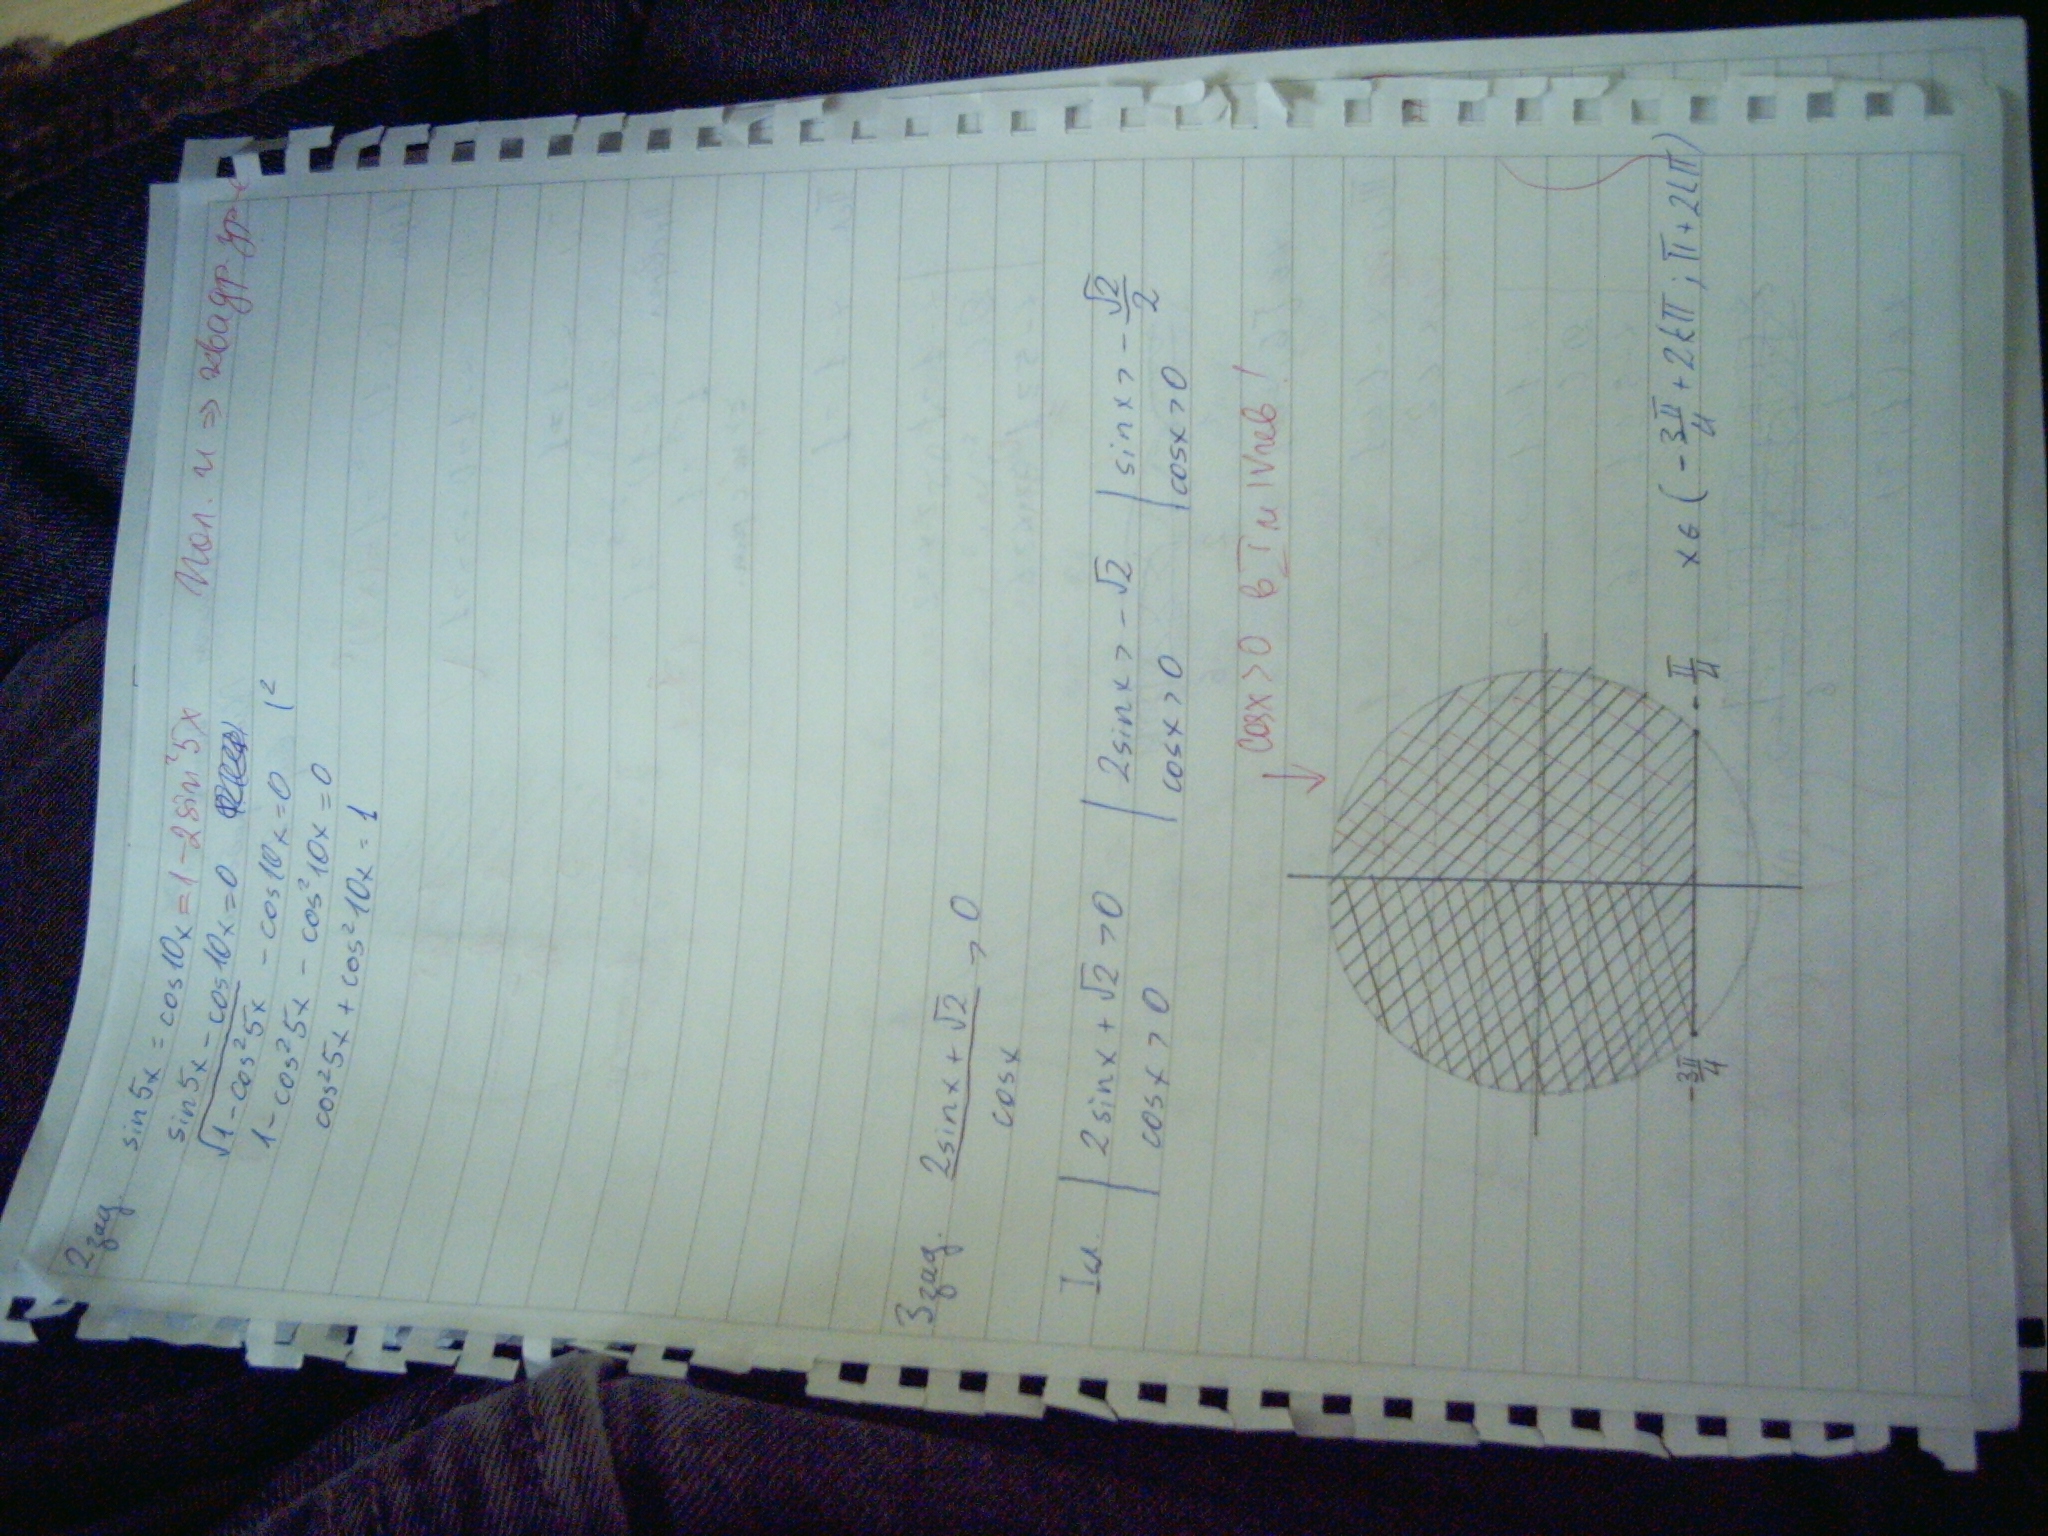 2 зад.
sin5x = cos10x = 1 - 2sin²5x Пол. u ⇒ квадр. ур-е
sin5x - cos10x = 0
√1 - cos²5x - cos10x = 0 |²
1 - cos²5x - cos²10x = 0
cos²5x + cos²10x = 1
3 зад. 2sinx + √2 / cosx > 0
I сл. | 2sinx + √2 > 0 | 2sinx > - √2 | sinx > - √2/2
| cosx > 0 | cosx > 0 | cosx > 0
↓ cosx > 0 в I и IV
-3π/4 - π/4 x ϵ ( - 3π/4 + 2kπ ; π + 2kπ )